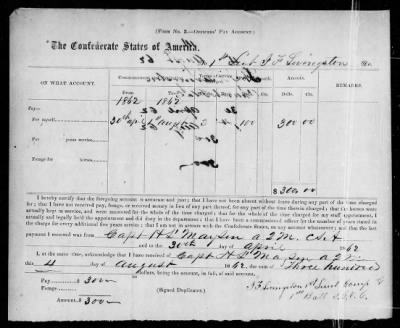 (Form No. 3.—Officers' Pay Account.)
The Confederate States of America,
To 1st Lieut J F Livingston Dr.
ON WHAT ACCOUNT.
Commencement
Term of Service
Amount.
REMARKS.
Months.
Days.
Dolls.
Cts.
Dolls.
Cts.
1862 1862
Pay—
For myself,
30th apl 31st august 3 100 300 00
For years service,
Forage for horses,
$ 300 00
I hereby certify that the foregoing account is accurate and just; that I have not been absent without leave during any part of the time charged
for; that I have not received pay, forage, or received money in lieu of any part thereof, for any part of the time therein charged; that the horses were
actually kept in service, and were mustered for the whole of the time charged; that for the whole of the time charged for my staff appointment, I
actually and legally held the appointment and did duty in the department; that I have been a commissioned officer for the number of years stated in
the charge for every additional five years service; that I am not in arrears with the Confederate States, on any account whatsoever; and that the last
payment I received was from Capt H L Mayson A Q M. C.S.A
and to the 30th day of April 1862
I, at the same time, acknowledge that I have received of Capt H L Mayson A Q M.
this 4 day of August 1862, the sum of Three hundred
dollars, being the amount, in full, of said account.
Pay— $ 300 00
Forage—
Amount— $ 300 00
J F Livingston 1st Lieut Comp
1st Batt